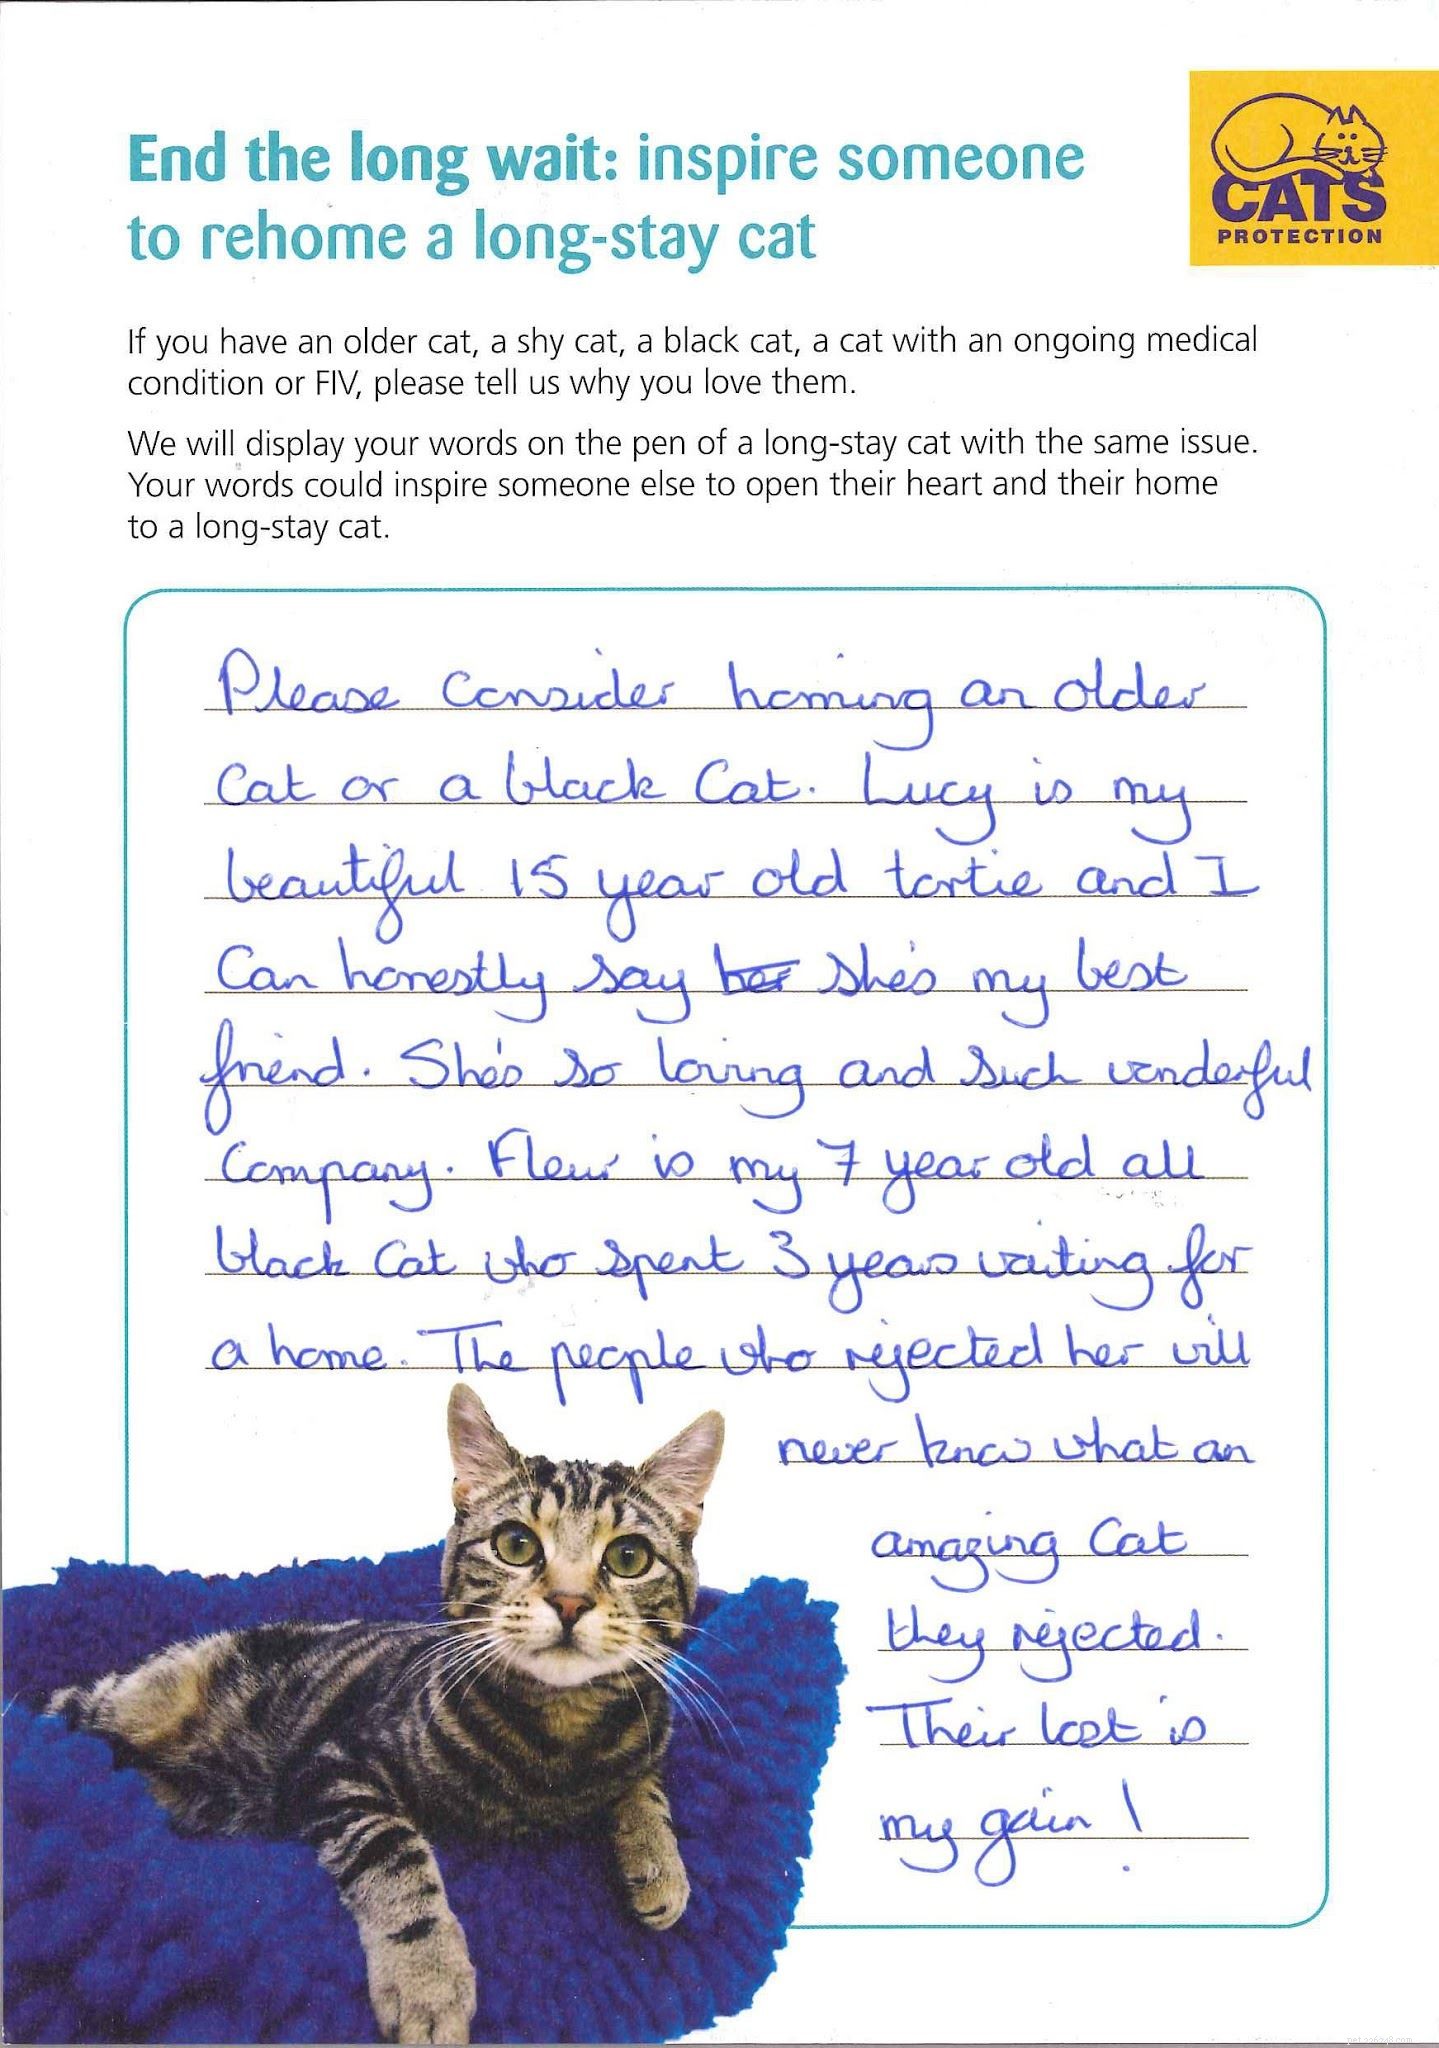 End the long wait: inspire someone
to rehome a long-stay cat
CATS
PROTECTION
If you have an older cat, a shy cat, a black cat, a cat with an ongoing medical
condition or FIV, please tell us why you love them.
We will display your words on the pen of a long-stay cat with the same issue.
Your words could inspire someone else to open their heart and their home
to a long-stay cat.
Please consider homing an older
cat or a black cat. Lucy is my
beautiful 15 year old tortie and I
can honestly say her she's my best
friend. She's so loving and such wonderful
company. Fleur is my 7 year old all
black cat who spent 3 years waiting for
a home. The people who rejected her will
never know what an
amazing cat
they rejected.
Their lost is
my gain!